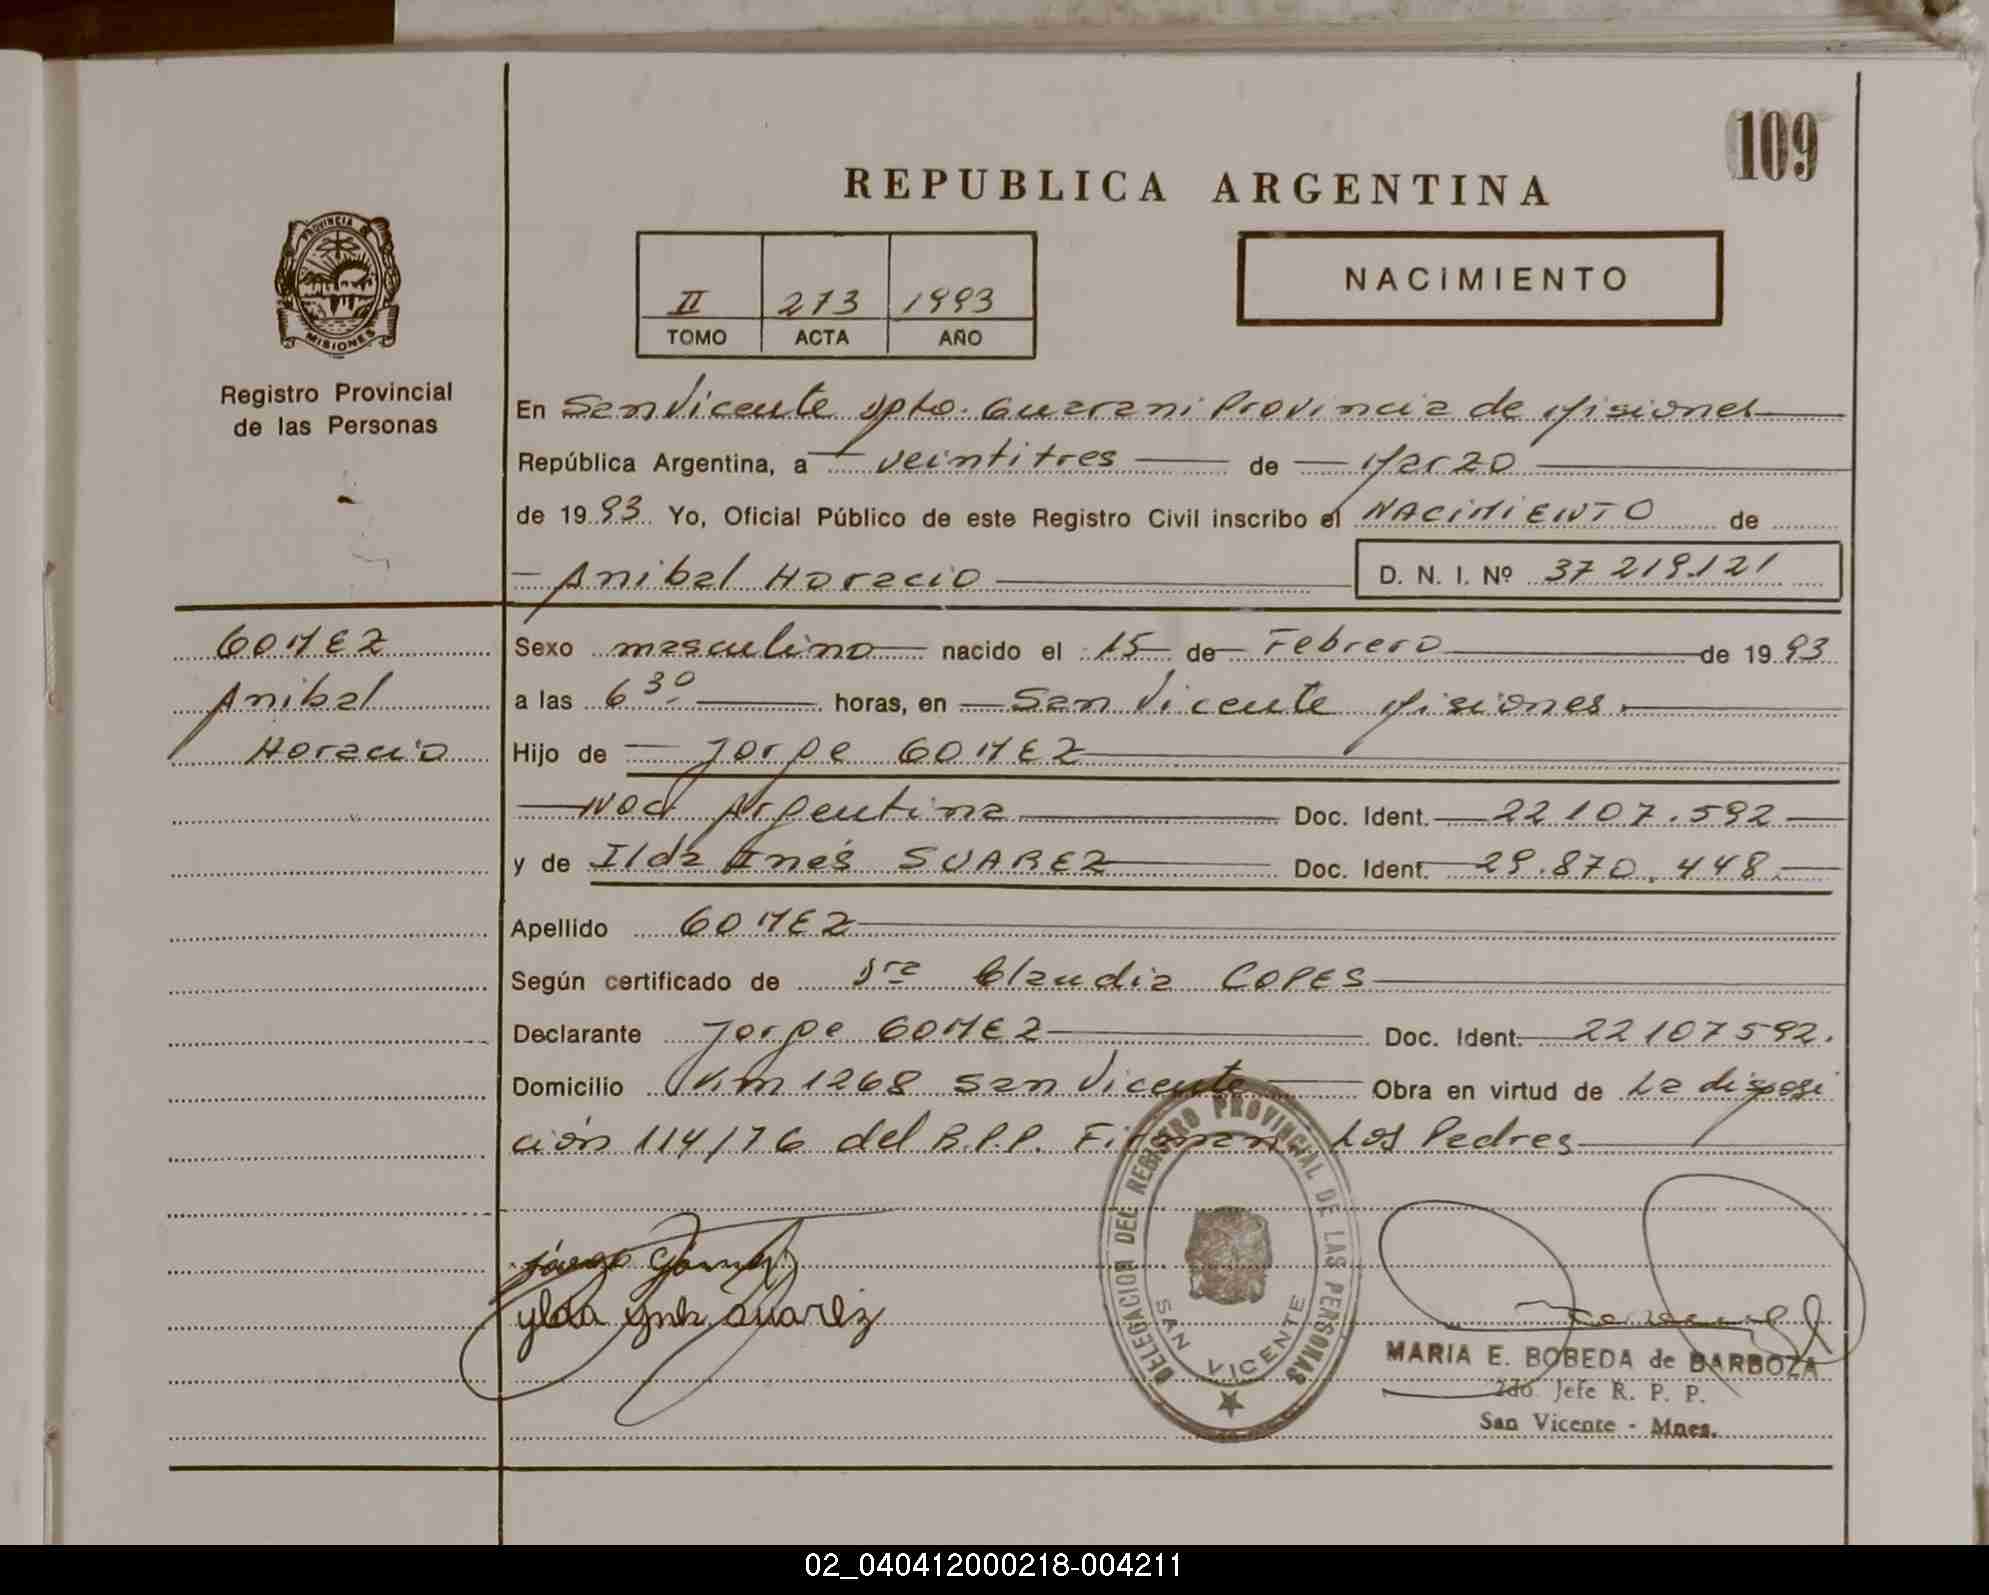 109
REPUBLICA ARGENTINA
PROVINCIA DE
MISIONES
II 273 1993
TOMO ACTA AÑO
NACIMIENTO
Registro Provincial
de las Personas
En San Vicente Dpto. Guarani Provincia de Misiones
República Argentina, a veintitres de Marzo
de 1993 Yo, Oficial Público de este Registro Civil inscribo el NACIMIENTO de
Anibal Horacio D. N. I. Nº 37 219.121
GOMEZ
Anibal
Horacio
Sexo masculino nacido el 15 de Febrero de 1993
a las 6 30 horas, en San Vicente Misiones.
Hijo de Jorge GOMEZ
Nac. Argentina Doc. Ident. 22 107.592
y de Ilda Inés SUAREZ Doc. Ident. 29.870.448.
Apellido GOMEZ
Según certificado de Dra Claudia COPES
Declarante Jorge GOMEZ Doc. Ident. 22107592.
Domicilio Km 1268 San Vicente Obra en virtud de La disposi
ción 114/76 del R.P.P. Firman Los Padres
Ylda Ynes Suarez
DELEGACION DEL REGISTRO PROVINCIAL DE LAS PERSONAS
SAN VICENTE
MARIA E. BOBEDA de BARBOZA
2do. Jefe R. P. P.
San Vicente - Mnes.
02_040412000218-004211